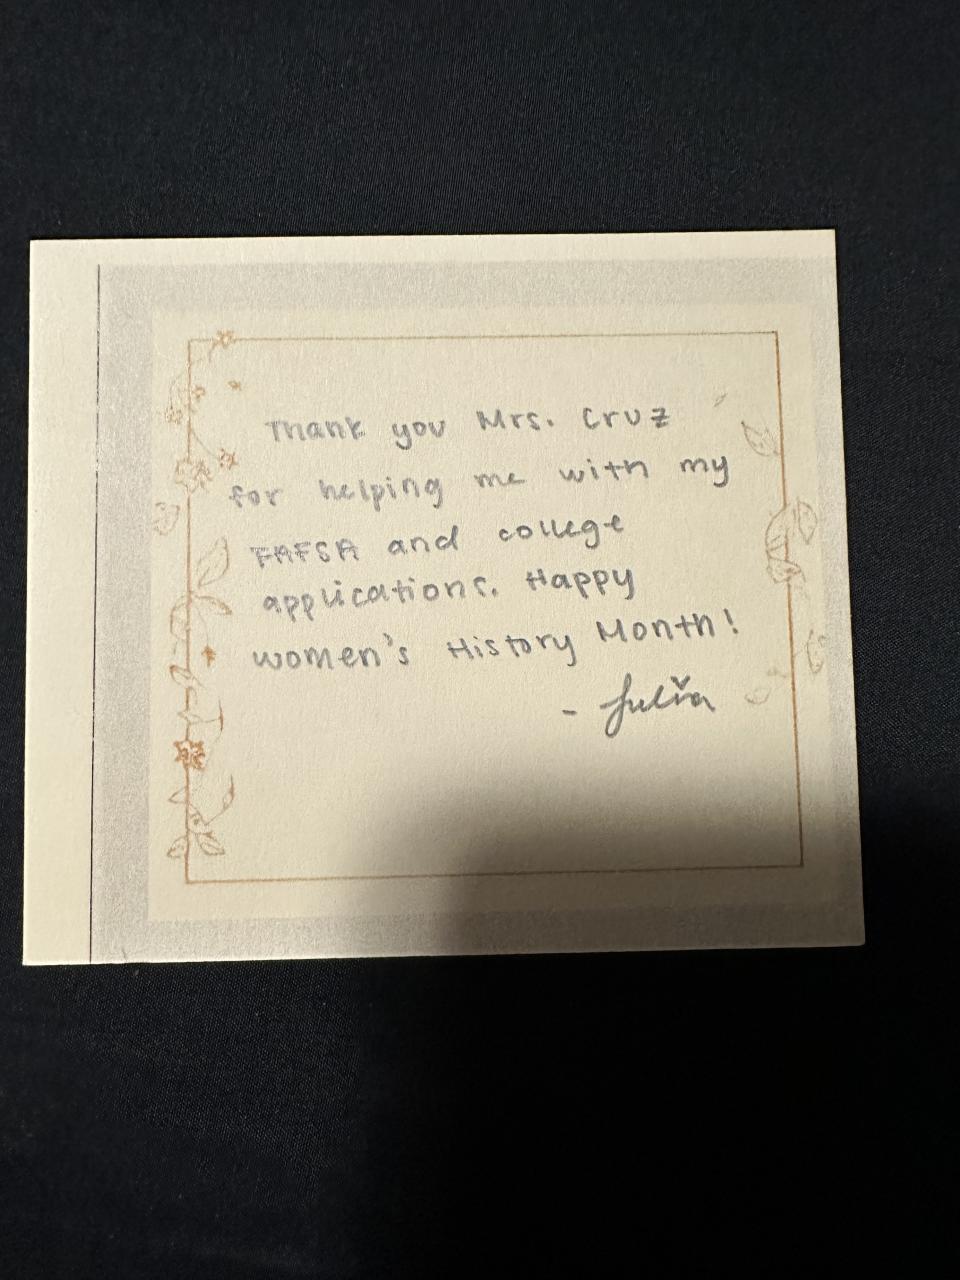 Thank you Mrs. Cruz
for helping me with my
FAFSA and college
applications. Happy
women's History Month!
- Julia